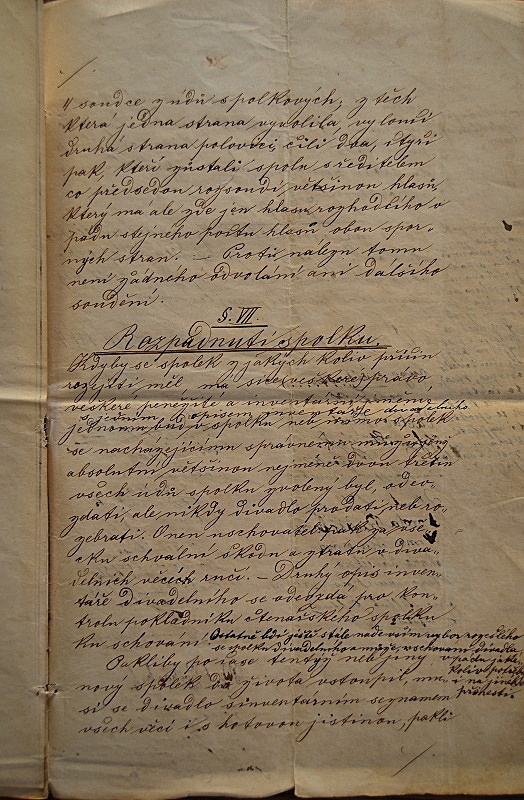 4 soudce z údů spolkových; z těch
která jedna strana vyvolila vylomí
druhá strana polovici, čili dva, čtyři
pak, kteří zůstali spolu s ředitelem
co předsedou rozsoudí většinou hlasů,
který má ale zde jen hlasu rozhodčího v
pádu stejného počtu hlasů obou spor-
ných stran. — Proti nálezu tomu
není žádného odvolání ani dalšího
soudění.
§. VII.
Rozpadnutí spolku.
Kdyby se spolek z jakých koliv příčin
rozejíti měl, má své veškeré právo,
veškeré peněžité a inventární jmění
s jedním opisem inventáře divadelního
jednomu buď v spolku neb mimo spolek
se nacházejícímu správnému muži, který
absolutní většinou nejméně dvou třetin
všech údů spolku zvolený byl, odev-
zdati, ale nikdy divadlo prodati neb ro-
zebrati. Onen uschovatel pak za vše-
cku schvální škodu a ztrátu v diva-
delních věcech ručí. — Druhý opis inven-
táře divadelního se odevzdá pro kon-
trolu pokladníku čtenářského spolku
ku schování.
Ostatně bdí ještě stále nade vším výbor rozešlého
se spolku divadelního a může, uschované divadlo,
v pádu
i na jiného
přenésti.
Pakliby po čase tentýž neb jiný
nový spolek do života vstoupil, mu-
si se divadlo s inventárním seznamem
všech věcí i s hotovou jistinou, pakli